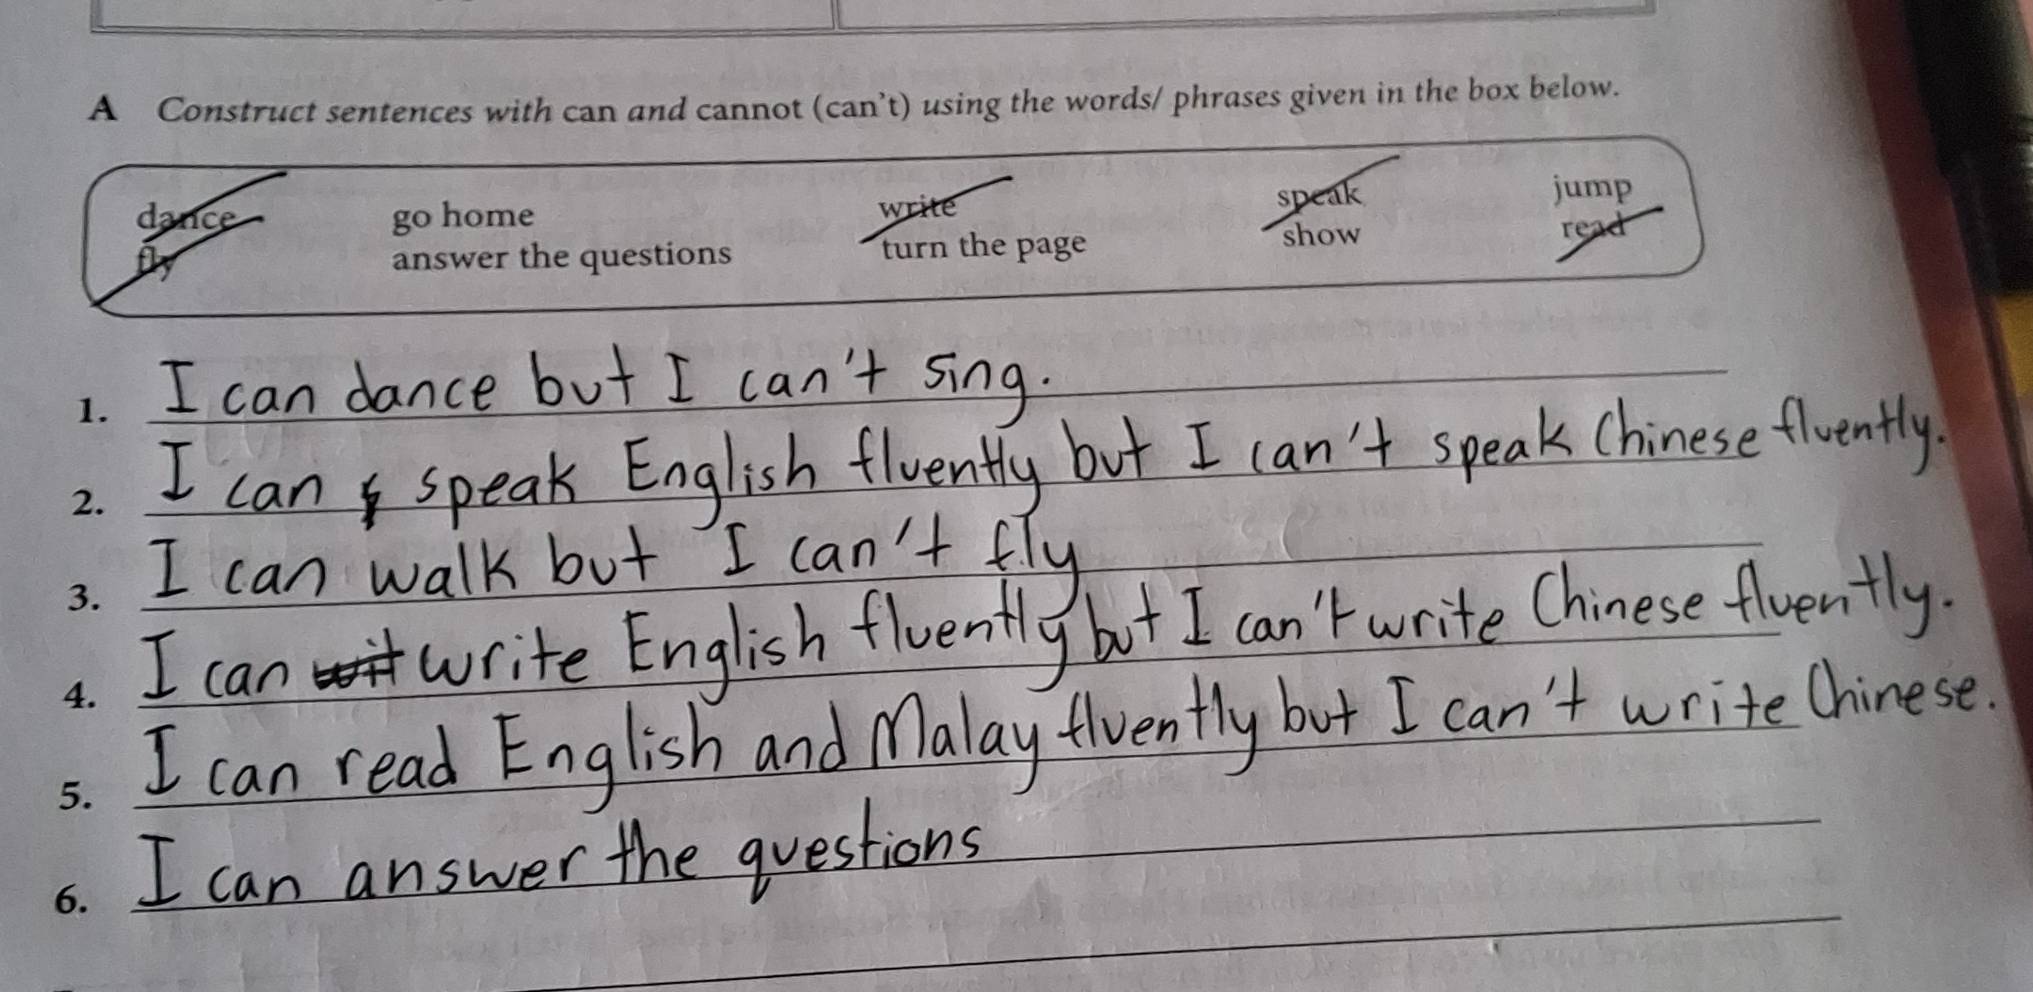 A Construct sentences with can and cannot (can't) using the words/ phrases given in the box below.
dance go home write speak jump
fly answer the questions turn the page show read
1. I can dance but I can't sing.
2. I can speak English fluently but I can't speak Chinese fluently.
3. I can walk but I can't fly
4. I can write English fluently but I can't write Chinese fluently.
5. I can read English and Malay fluently but I can't write Chinese.
6. I can answer the questions